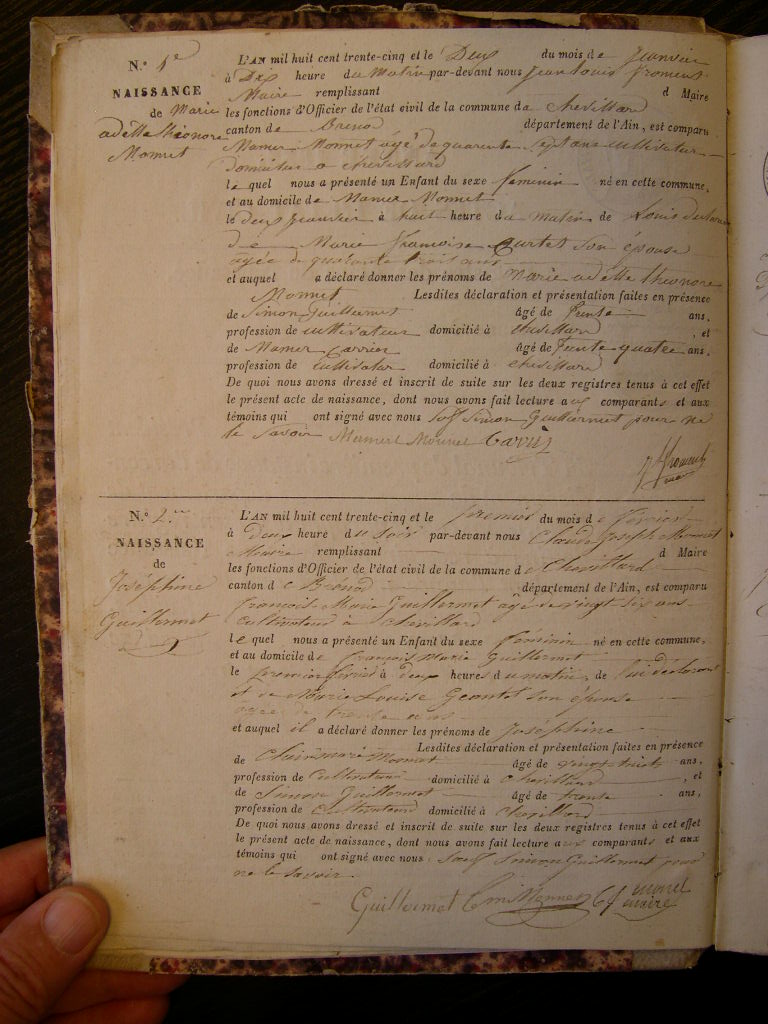 N.° 1e
NAISSANCE
de Marie
adette théonore
Monnet
L'AN mil huit cent trente-cinq et le Deux du mois de Janvier
à Dix heure du Matin par-devant nous Jean Louis froment
Maire remplissant d Maire
les fonctions d'Officier de l'état civil de la commune de chevillard
canton de Brenod département de l'Ain, est comparu
Mamer Monnet agé de quarente sept ans cultivatur
domicilié a chevillard
le quel nous a présenté un Enfant du sexe feminin né en cette commune,
et au domicile de Mamer Monnet
le deux Janvier à huit heure du matin, de
Marie francoise Burtet son épouse
agée de quarante trois ans
et auquel a déclaré donner les prénoms de Marie adette théonore
Monnet Lesdites déclaration et présentation faites en présence
de Simon Guillermet âgé de trente ans,
profession de cultivateur domicilié à chevillard, et
de Mamer Carrier âgé de trente quatre ans,
profession de cultivatur domicilié à chevillard
De quoi nous avons dressé et inscrit de suite sur les deux registres tenus à cet effet
le présent acte de naissance, dont nous avons fait lecture aux comparants et aux
témoins qui ont signé avec nous sof Simon Guilliermet pour ne
le savoir Mamert Monnet
froment
N.° 2
NAISSANCE
de
Joséphine
Guillermet
L'AN mil huit cent trente-cinq et le premier du mois de février
à Deux heure du soir par-devant nous Claude Joseph Monnet
Maire remplissant d Maire
les fonctions d'Officier de l'état civil de la commune de Chevillard
canton de Brénod département de l'Ain, est comparu
françois Marie Guillermet âgé de vingt six ans
cultivateur à chevillard
le quel nous a présenté un Enfant du sexe féminin né en cette commune,
et au domicile de françois Marie Guillermet
le premier février à deux heures du matin, de lui déclarant
et de Marie Louise Geantet son épouse
agée de trente ans
et auquel il a déclaré donner les prénoms de Joséphine
Lesdites déclaration et présentation faites en présence
de Monnet âgé de vingt huit ans,
profession de Cultivateur domicilié à Chevillard, et
de Simon Guillermet âgé de trente ans,
profession de Cultivateur domicilié à Chevillard
De quoi nous avons dressé et inscrit de suite sur les deux registres tenus à cet effet
le présent acte de naissance, dont nous avons fait lecture aux comparants et aux
témoins qui ont signé avec nous Sauf Simon Guillermet pour
ne le savoir.
Guillermet Monnet monnet
maire